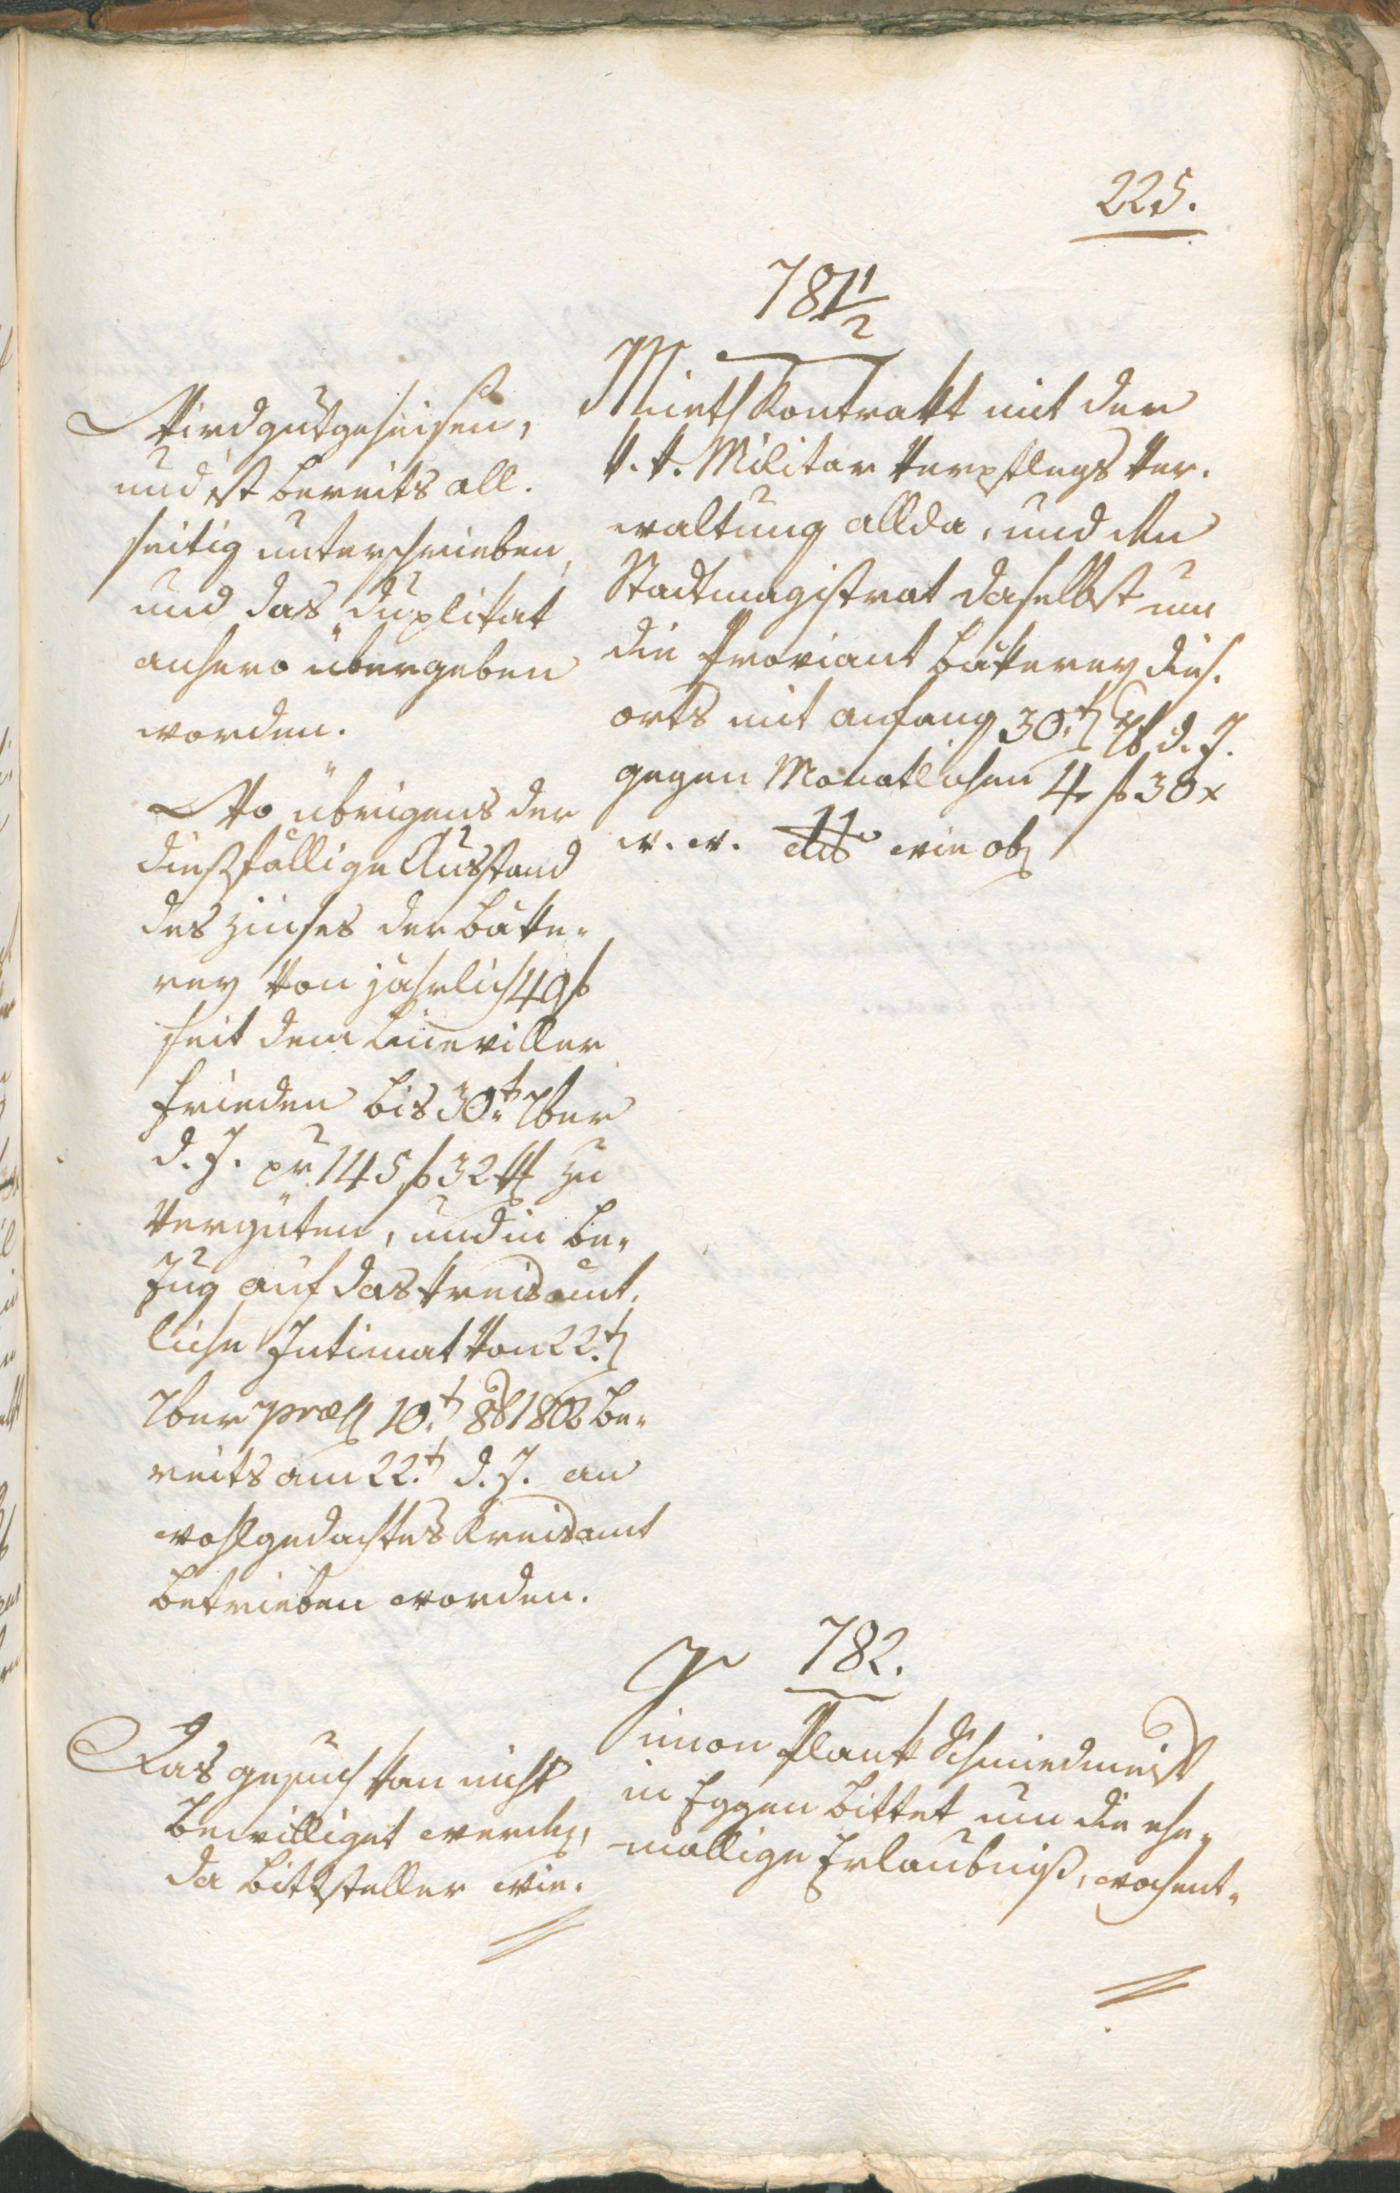 225.
781 1/2
Mieth Kontrakt mit der
k. k. Militar Verpflegs Ver-
waltung allda, und den
Stadtmagistrat daselbst um
die Proviant Bäkerey dies-
orts mit anfang 30.t 7b d. J.
gegen Monatlichen 4 f 30 x
w. w. wie ob
Wird gutgeheisen,
und ist bereits all-
seitig unterschrieben,
und das Duplikat
anhero übergeben
worden.
Wo übrigens der
dießfällige Ausstand
des Zinses der Bäke-
rey von jährlich 49 f
seit dem Lüneviller
Frieden bis 30.t 7ber
d. J. pr 145 f 32 zu
vergüten, und in Be-
zug auf das kreisamt-
liche Intimat von 22.t
7ber 10.t 8b be-
reits am 22.t d. J. an
wohlgedachtes Kreisamt
betrieben worden.
782.
Simon Plank Schmiedmeist
in Eggen bittet um die ehe-
mallige Erlaubniß, wochent-
Das gesuch kan nicht
bewilliget werden,
da Bittsteller wie-